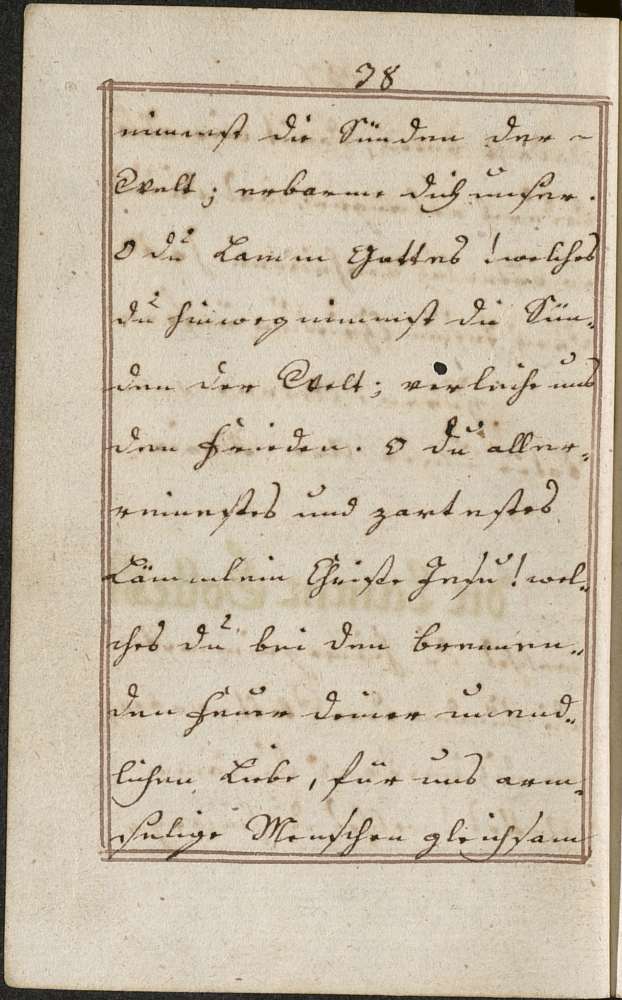 38
nimmst die Sünden der
Welt; erbarme dich unser.
O du Lamm Gottes! welches
du hinweg nimmst die Sün-
den der Welt; verleihe uns
den Frieden. O du aller-
reinestes und zartestes
Lämmlein Christe Jesu! wel-
ches du bei den brennen-
den Feuer deiner unend-
lichen Liebe, für uns arm-
selige Menschen gleichsam